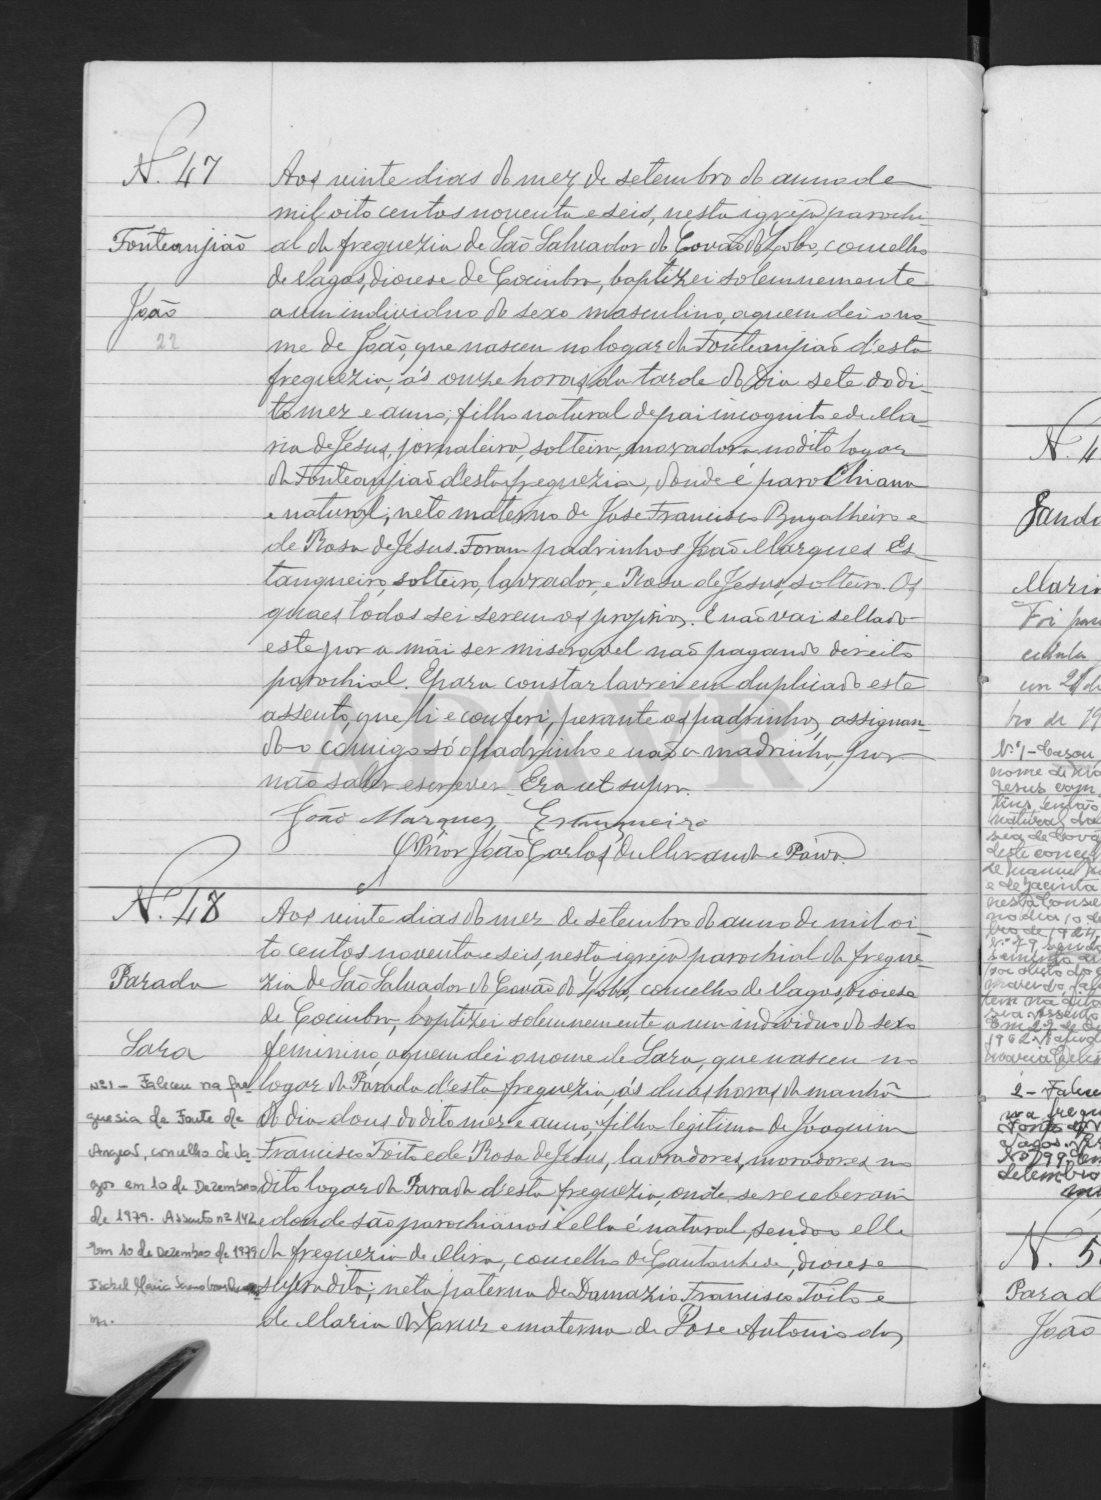 N. 47
Fonteanjião
João
22
Aos vinte dias do mez de setembro do anno de
mil oito centos noventa e seis, nesta igreja parochi-
al da freguezia de São Salvador do Covão do Lobo, concelho
de Vagos, diocese de Coimbra, baptizei solemnemente
a um individuo do sexo masculino, a quem dei o no-
me de João, que nasceu no logar da Fonteanjião d'esta
freguezia, ás onze horas da tarde do dia sete do di-
to mez e anno, filho natural de pai incognito e de Ma-
ria de Jesus, jornaleira, solteira, moradora no dito logar
da Fonteanjião d'esta freguezia, donde é parochiana
e natural; neto materno de José Francisco Bugalheiro e
de Rosa de Jesus. Foram padrinhos João Marques Es-
tanqueiro, solteiro, lavrador, e Rosa de Jesus, solteira. Os
quaes todos sei serem os proprios. E não vai sellado
este por a mãi ser miseravel não pagando direito
parochial. E para constar lavrei em duplicado este
assento, que li e conferi, perante os padrinhos, assignan-
do-o comigo só o padrinho e não a madrinha, por
não saber escrever. Era ut supra.
João Marques Estanqueiro
O Prior João Carlos d'Allexandre Paiva
N. 48
Parada
Sara
Nº 1 - Faleceu na fre-
guesia de Fonte de
Angeão, concelho de Va-
gos em 10 de Dezembro
de 1979. Assento nº 142
Em 10 de Dezembro de 1979
Isabel Maria
Aos vinte dias do mez de setembro do anno de mil oi-
to centos noventa e seis, nesta igreja parochial da fregue-
zia de São Salvador do Covão do Lobo, concelho de Vagos, diocese
de Coimbra, baptizei solemnemente a um individuo do sexo
feminino, a quem dei o nome de Sara, que nasceu no
logar da Parada d'esta freguezia, ás duas horas da manhã
do dia dous do dito mez e anno, filha legitima de Joaquim
Francisco Toito e de Rosa de Jesus, lavradores, moradores no
dito logar da Parada d'esta freguezia, onde se receberam
e donde são parochianos e ella é natural, sendo o elle
da freguezia de Mira, concelho de Cantanhede, diocese
supradita; neta paterna de Damazio Francisco Toito e
de Maria da Cruz e materna de José Antonio dos
N. 4
Maria
Foi
em 21 de
Nº 1 - Casou
Jesus com
2 - Faleceu
na fregu
Vagos.
N. 5
Parad
João